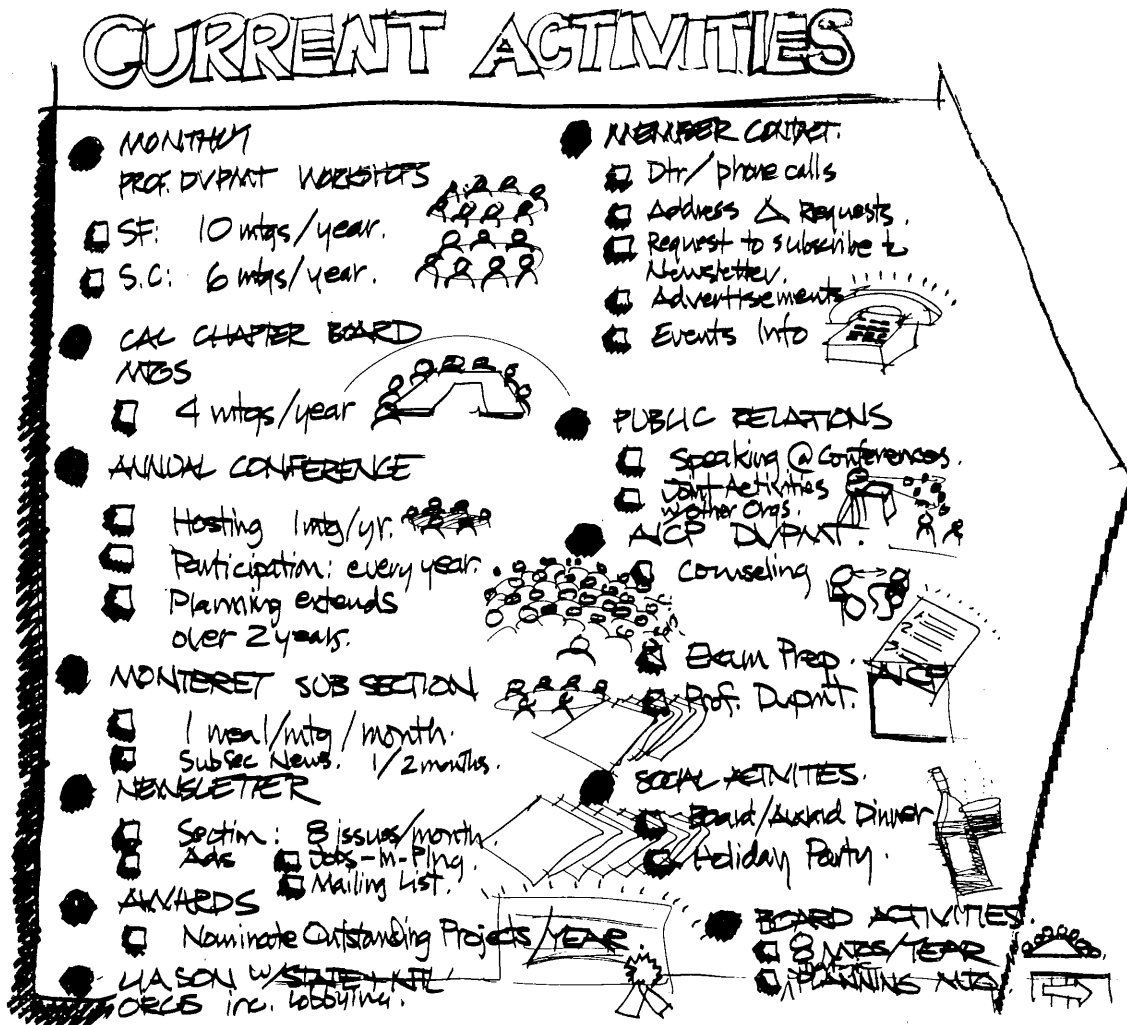 CURRENT ACTIVITIES
MONTHLY
PROF. DVPMT WORKSHOPS
SF: 10 mtgs/year.
S.C: 6 mtgs/year.
CAL CHAPTER BOARD
MTGS
4 mtgs/year
ANNUAL CONFERENCE
Hosting 1mtg/yr.
Participation: every year.
Planning extends
over 2 years.
MONTEREY SUB SECTION
1 meal/mtg/month.
SubSec News. 1/2 months.
NEWSLETTER
Section: 8 issues/month.
Ads
Jobs-in-Plng.
Mailing List.
AWARDS
Nominate Outstanding Projects/YEAR.
LIASON W/STATE + NTL
ORGS inc. lobbying.
MEMBER CONTACT.
Ltr/phone calls
Address Δ Requests.
Request to subscribe to
Newsletter.
Advertisements
Events Info
PUBLIC RELATIONS
Speaking @ Conferences.
Joint Activities
w/other Orgs.
AICP DVPMT.
Counseling
Exam Prep.
Prof. Dvpmt.
1.
2.
3.
AICP
SOCIAL ACTIVITIES.
Board/Award Dinner
Holiday Party.
BOARD ACTIVITIES.
8 MTGS/YEAR
PLANNING MTG.